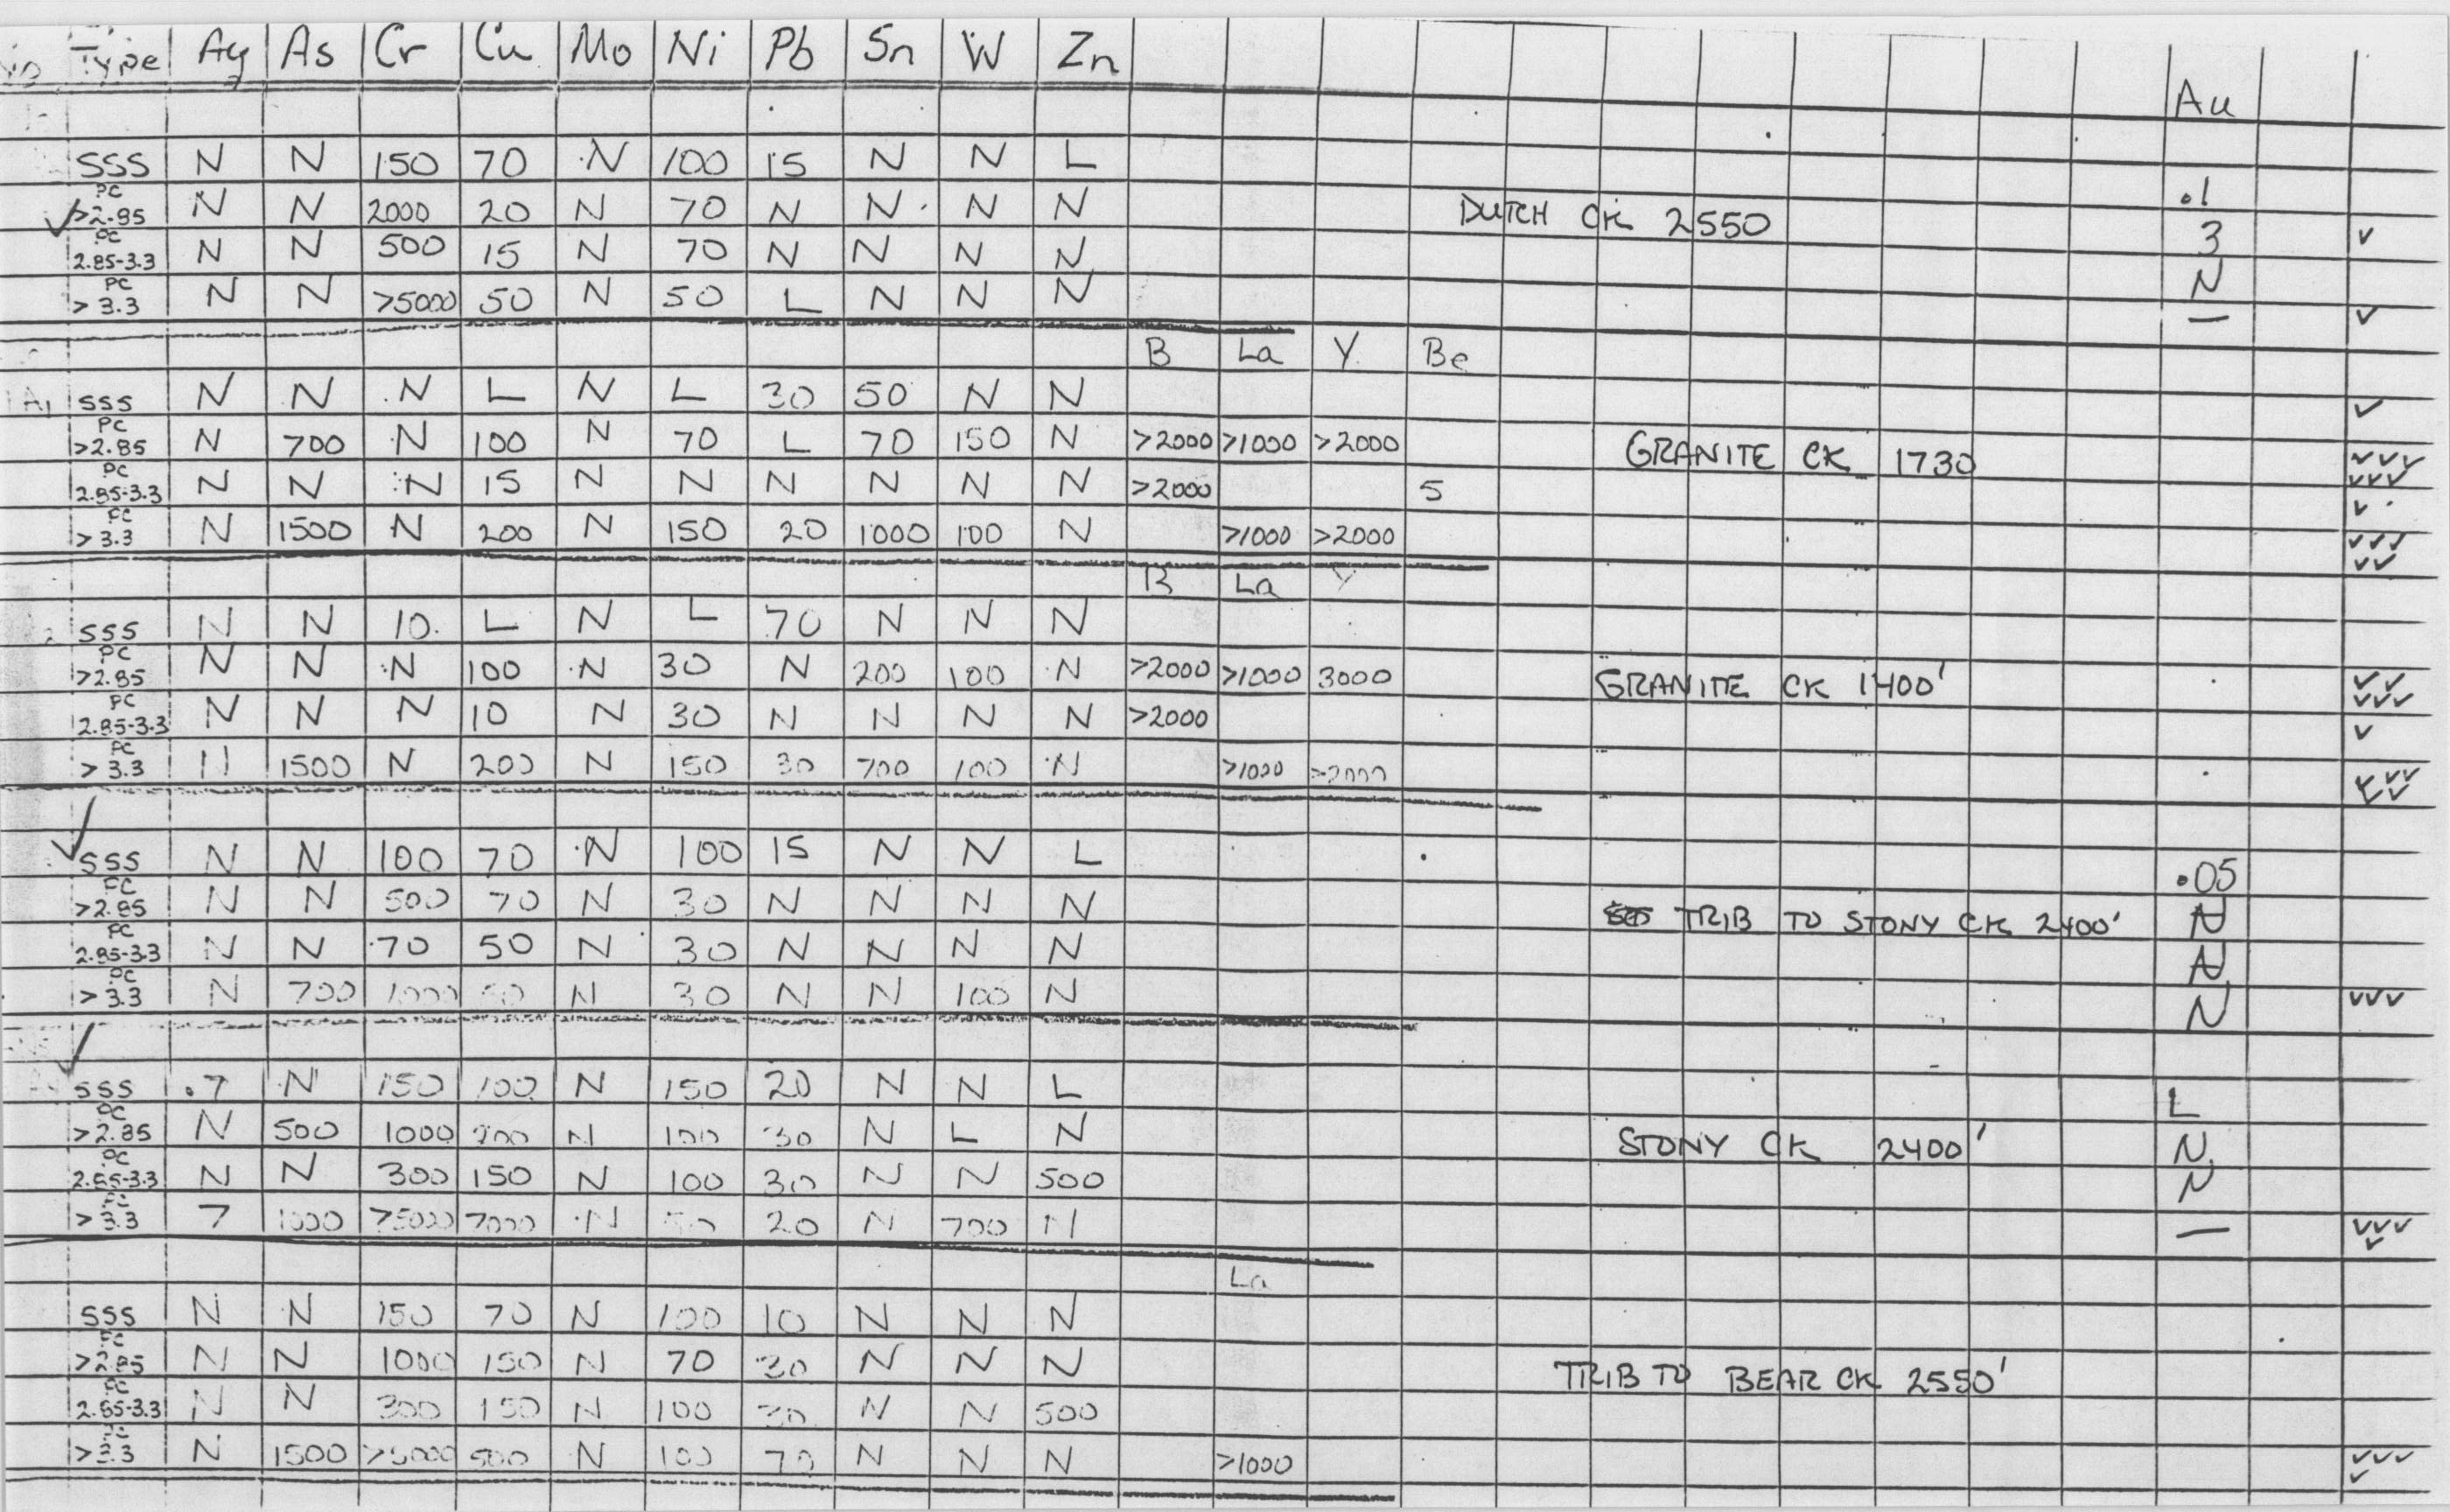 No Type Ag As Cr Cu Mo Ni Pb Sn W Zn Au
SSS N N 150 70 N 100 15 N N L .1
PC >2.85 N N 2000 20 N 70 N N N N DUTCH CK 2550 3 ✓
PC 2.85-3.3 N N 500 15 N 70 N N N N N
PC >3.3 N N >5000 50 N 50 L N N N — ✓
B La Y Be
SSS N N N L N L 30 50 N N ✓
PC >2.85 N 700 N 100 N 70 L 70 150 N >2000 >1000 >2000 GRANITE CK 1730 ✓✓✓✓✓✓
PC 2.85-3.3 N N N 15 N N N N N N >2000 5 ✓
PC >3.3 N 1500 N 200 N 150 20 1000 100 N >1000 >2000 ✓✓✓✓✓
B La Y
SSS N N 10 L N L 70 N N N
PC >2.85 N N N 100 N 30 N 200 100 N >2000 >1000 3000 GRANITE CK 1400' ✓✓✓✓✓
PC 2.85-3.3 N N N 10 N 30 N N N N >2000 ✓
PC >3.3 N 1500 N 200 N 150 30 700 100 N >1000 >2000 ✓✓✓✓✓
✓ SSS N N 100 70 N 100 15 N N L .05
PC >2.85 N N 500 70 N 30 N N N N TRIB TO STONY CK 2400' N
PC 2.85-3.3 N N 70 50 N 30 N N N N N
PC >3.3 N 700 1000 N 30 N N 100 N N ✓✓✓
✓ SSS .7 N 150 100 N 150 20 N N L L
PC >2.85 N 500 1000 200 N 100 30 N L N STONY CK 2400' N
PC 2.85-3.3 N N 300 150 N 100 30 N N 500 N
PC >3.3 7 1000 >5000 7000 N 20 N 700 N — ✓✓✓✓
La
SSS N N 150 70 N 100 10 N N N
PC >2.85 N N 1000 150 N 70 30 N N N TRIB TO BEAR CK 2550'
PC 2.85-3.3 N N 300 150 N 100 30 N N 500
PC >3.3 N 1500 >5000 500 N 100 70 N N N >1000 ✓✓✓✓